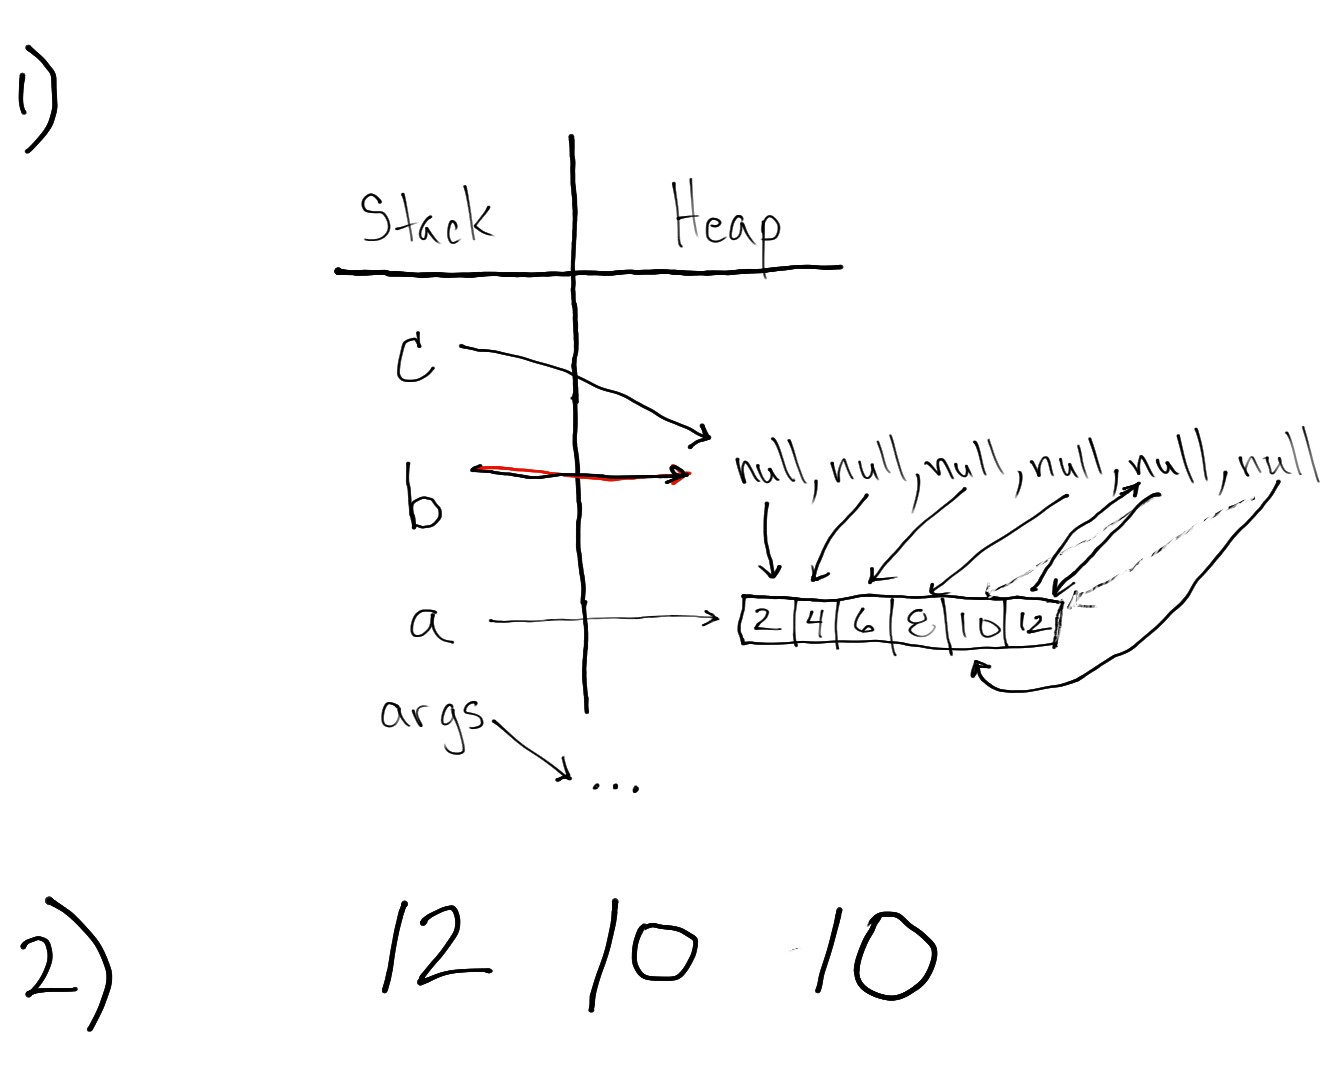 1)
Stack Heap
c
b
null, null, null, null, null, null
a
2 4 6 8 10 12
args
...
2) 12 10 10